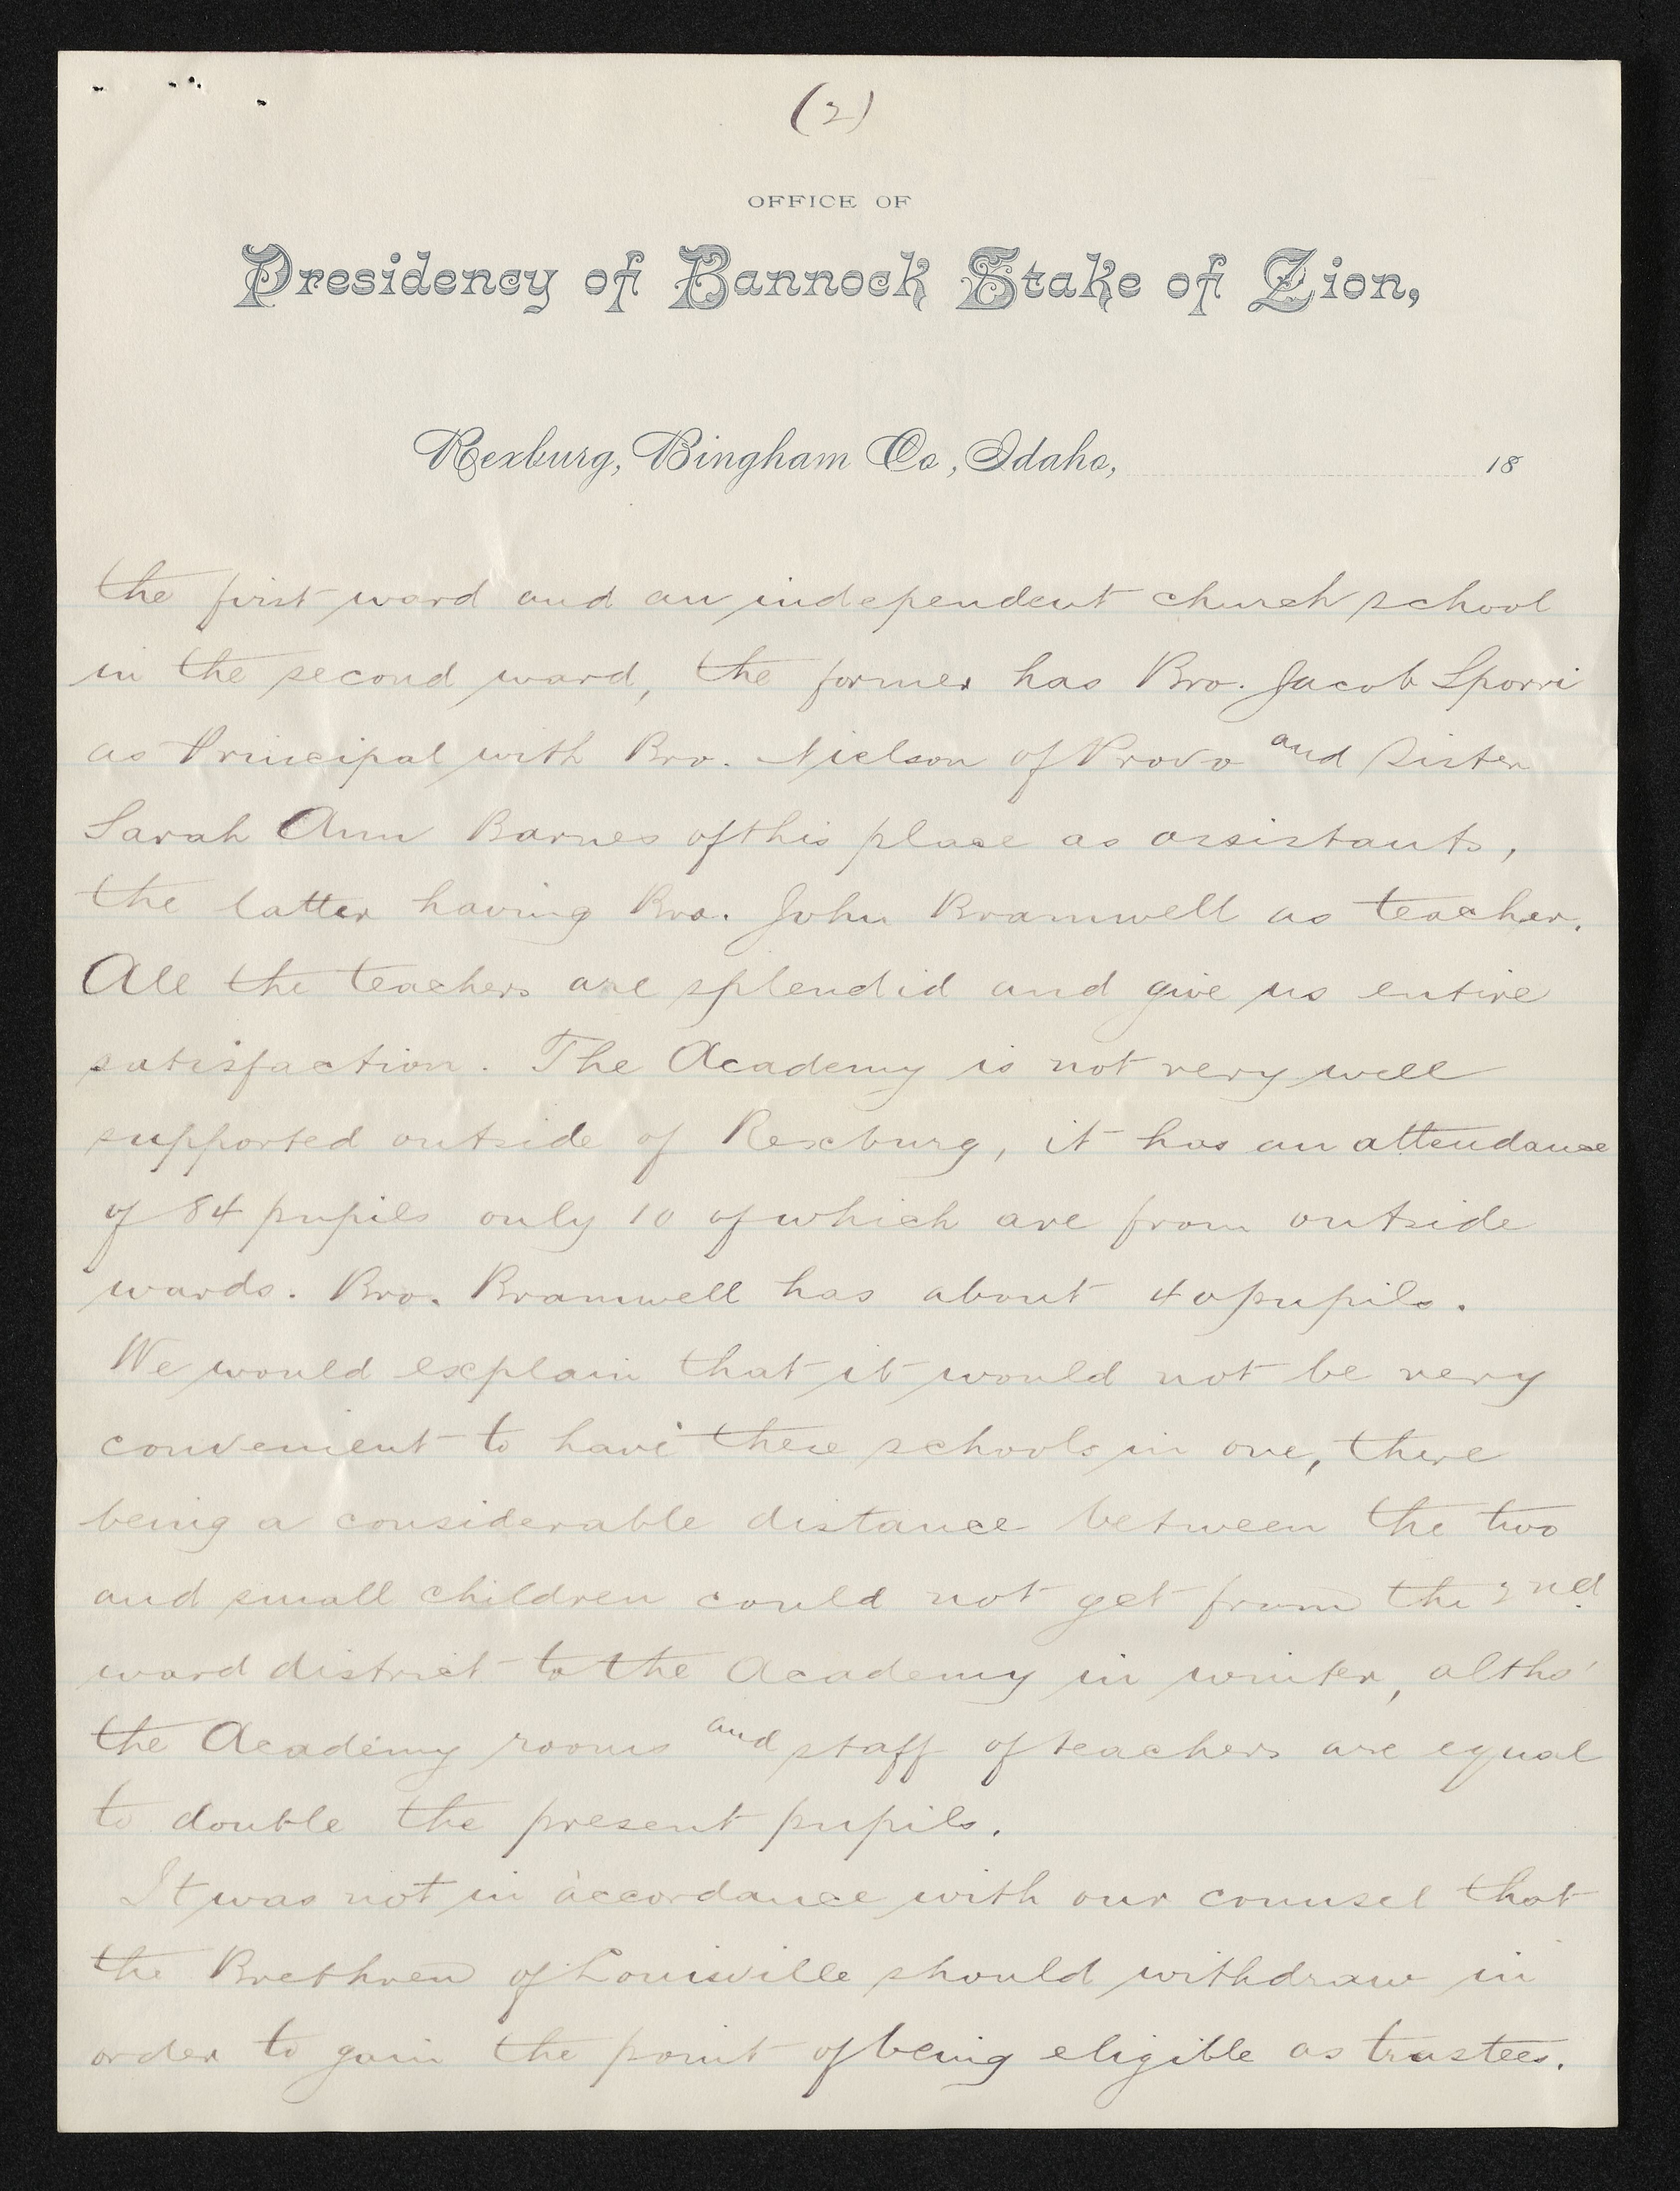 (2)
OFFICE OF
Presidency of Bannock Stake of Zion,
Rexburg, Bingham Co, Idaho, 18
the first ward and an independent church school
in the second ward, the former has Bro. Jacob Sporri
as Principal with Bro. Nielson of Provo and Sister
Sarah Ann Barnes of this place as assistants,
the latter having Bro. John Bramwell as teacher.
All the teachers are splendid and give us entire
satisfaction. The Academy is not very well
supported outside of Rexburg, it has an attendance
of 84 pupils only 10 of which are from outside
wards. Bro. Bramwell has about 40 pupils.
We would explain that it would not be very
convenient to have these schools in one, there
being a considerable distance between the two
and small children could not get from the 2nd.
ward district to the Academy in winter, altho'
the Academy rooms and staff of teachers are equal
to double the present pupils.
It was not in accordance with our counsel that
the Brethren of Louisville should withdraw in
order to gain the point of being eligible as trustees.